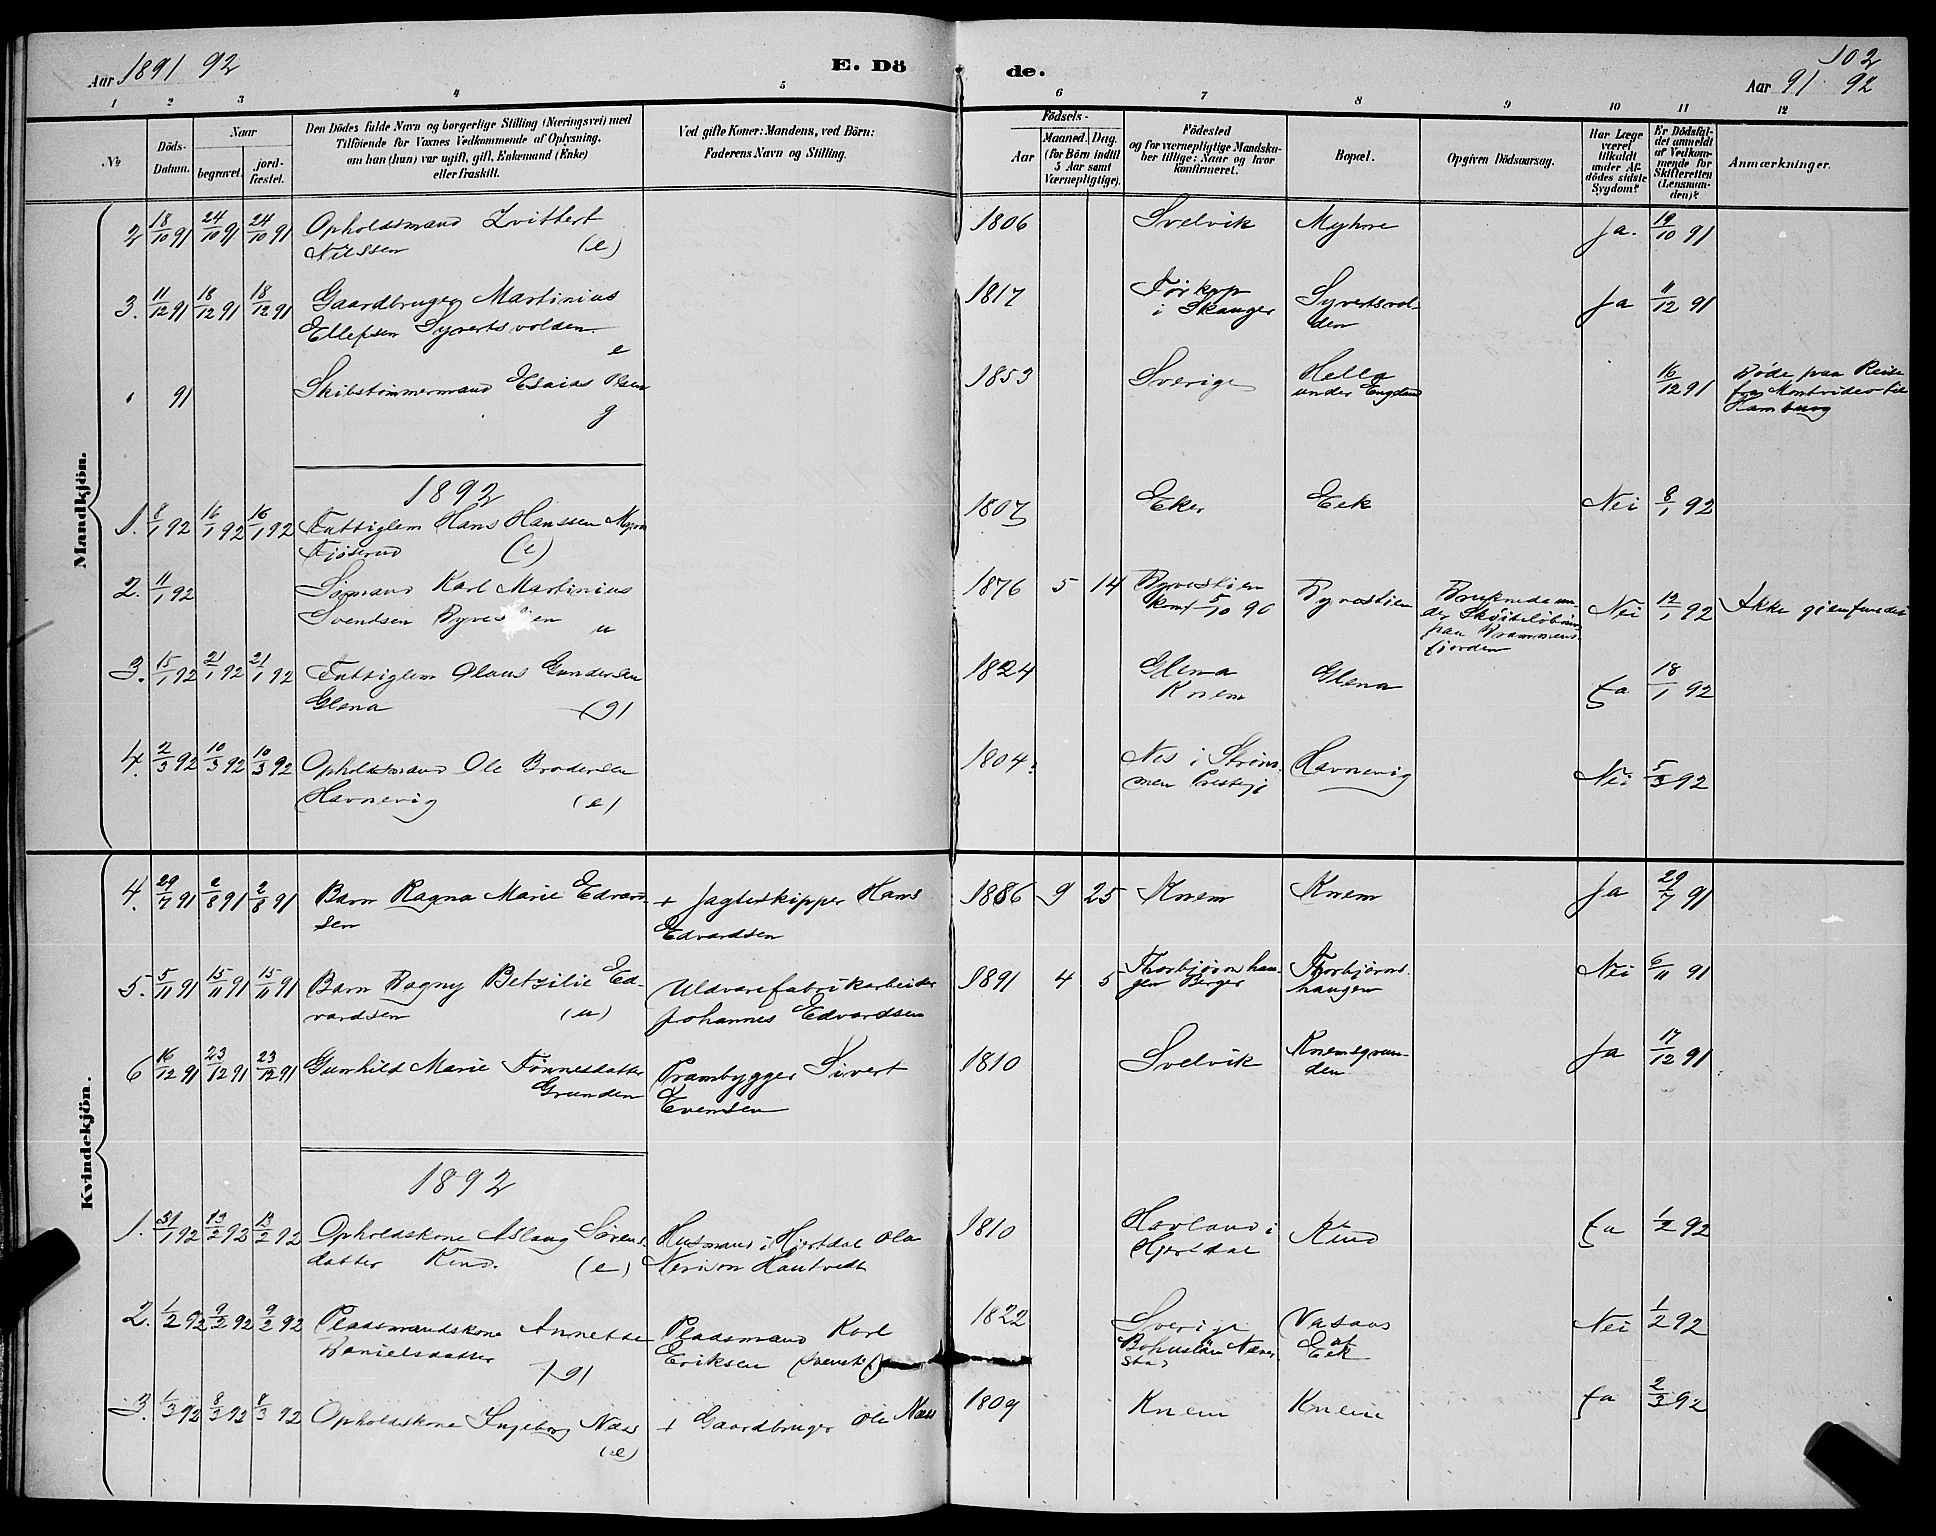 Aar 1891 92
E. Dö
de.
102
Aar 91 92
1 2 3 4 5 6 7 8 9 10 11 12
№
Döds-Datum.
Naar
begravet.
jord-fæstet.
Den Dödes fulde Navn og borgerlige Stilling (Næringsvei) med
Tilföiende for Voxnes Vedkommende af Oplysning.
om han (hun) var ugift, gift, Enkemand (Enke)
eller fraskilt.
Ved gifte Koner: Mandens, ved Börn:
Faderens Navn og Stilling.
Födsels-
Aar
Maaned. Dag.
(for Börn indtil
5 Aar samt
Værnepligtige).
Födested
og for værnepligtige Mandsku-
ber tillige: Naar og hvor
konfirmeret.
Bopæl.
Opgiven Dödsaarsag.
Har Læge
været
tilkaldt
under Af-
dödes sidste
Sygdom?
Er Dödsfal-
det anmeldt
af Vedkom-
mende for
Skifteretten
(Lensman-
den)?
Anmærkninger.
Mandkjön.
2 18/10 91 24/10 91 24/10 91 Opholdsmand 1806 Svelvik Myhre Ja. 19/10 91
Nilssen (e)
3. 11/12 91 18/12 91 18/12 91 Gaardbruger Martinius 1817 Syvertsvol- Ja 11/12 91
Ellefsen Syvertsvolden i Skauger den
e
91 Skibstømmermand Esaias Olsen 1853 Sverige Hella 16/12 91 Døde paa Reise
g under Engdend fra Montvideo til
Hamburg
1892
1. 8/1 92 16/1 92 16/1 92 Fattiglem Hans Hanssen Myra 1807 Eker Eek Nei 8/1 92
Fjøserud (e)
2. 11/1 92 Sømand Karl Martinius 1876 5 14 Dyrestien Dyrestien Druknede un- Nei 12/1 92 Ikke gjenfundet
Svendsen u konf 5/10 90 der Skøiteløbning
paa Drammens
fjorden
3. 15/1 92 21/1 92 21/1 92 Fattiglem Olaus Gundersen 1824 Glena Glena Ja 18/1 92
Glena (g) Knem
4. 2/3 92 10/3 92 10/3 92 Opholdsmand Ole Brodersen 1804 Nes i Strøm- Havnevig Nei 5/3 92
Havnevig (e) men Prestegj
Kvindekjön.
4. 29/7 91 2/8 91 2/8 91 Barn Ragna Marie Edvard- + Jagteskipper Hans 1886 9 25 Knem Knem Ja 29/7 91
sen Edvardsen
5. 5/11 91 15/11 91 15/11 91 Barn Dagny Betzilie Ed- Uldvarefabrikarbeider 1891 4 5 Thorbjørnhau- Thorbjørns- Nei 6/11 91
vardsen (u) Johannes Edvardsen gen Berger haugen
6 16/12 91 23/12 91 23/12 91 Gunhild Marie Tønnesdatter Prambygger Sivert 1810 Svelvik Knemsgrun- Ja 17/12 91
Grunden Evensen den
1892
1. 31/1 92 13/2 92 13/2 92 Opholdskone Aslaug Sørens- Husmand i Hjertdal Ole 1810 Havland i Kind Ja 1/2 92
datter Kind. (e) Nerison Hautvedt Hjertdal
2. 1/2 92 9/2 92 9/2 92 Pladsmandskone Annette Pladsmand Karl 1822 Sverige Vasaas Nei 1/2 92
Danielsdatter (g) Eriksen (svensk) Bohuslän Næver- Eek
stad
3. 1/3 92 8/3 92 8/3 92 Opholdskone Ingeborg Næss + Gaardbruger Ole Næss 1809 Knem Knem Ja 2/3 92
(e)